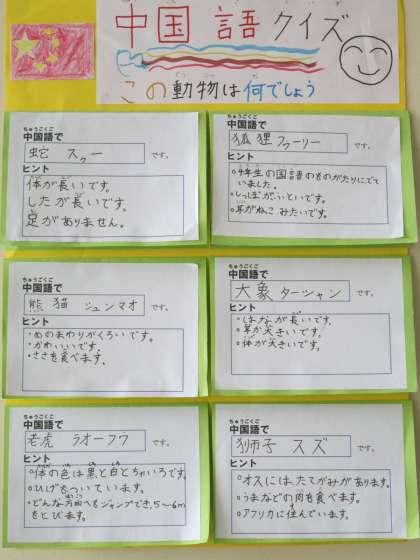 中国語クイズ
この動物は何でしょう
ちゅうごくご
中国語で
蛇 スゥー です。
ヒント
体が長いです。
したが長いです。
足がありません。
ちゅうごくご
中国語で
狐狸 フゥーリー です。
ヒント
○4年生の国語のものがたりにでて
いました。
○しっぽがふといです。
○耳がねこみたいです。
ちゅうごくご
中国語で
熊猫 ジュンマオ です。
ヒント
・めのまわりがくろいです。
・かわいいです。
・ささを食べます。
ちゅうごくご
中国語で
大象 ターシャン です。
ヒント
○はなが長いです。
○耳が大きいです。
○体が大きいです。
ちゅうごくご
中国語で
老虎 ラオーフウ です。
ヒント
○体の色は黒と白とちゃいろです。
○ひげをついています。
○どんな方向へもジャンプでき,5〜6m
をとびます。
ちゅうごくご
中国語で
狮子 スズ です。
ヒント
○オスには、たてがみがあります。
○うまなどの肉を食べます。
○アフリカに住んでいます。